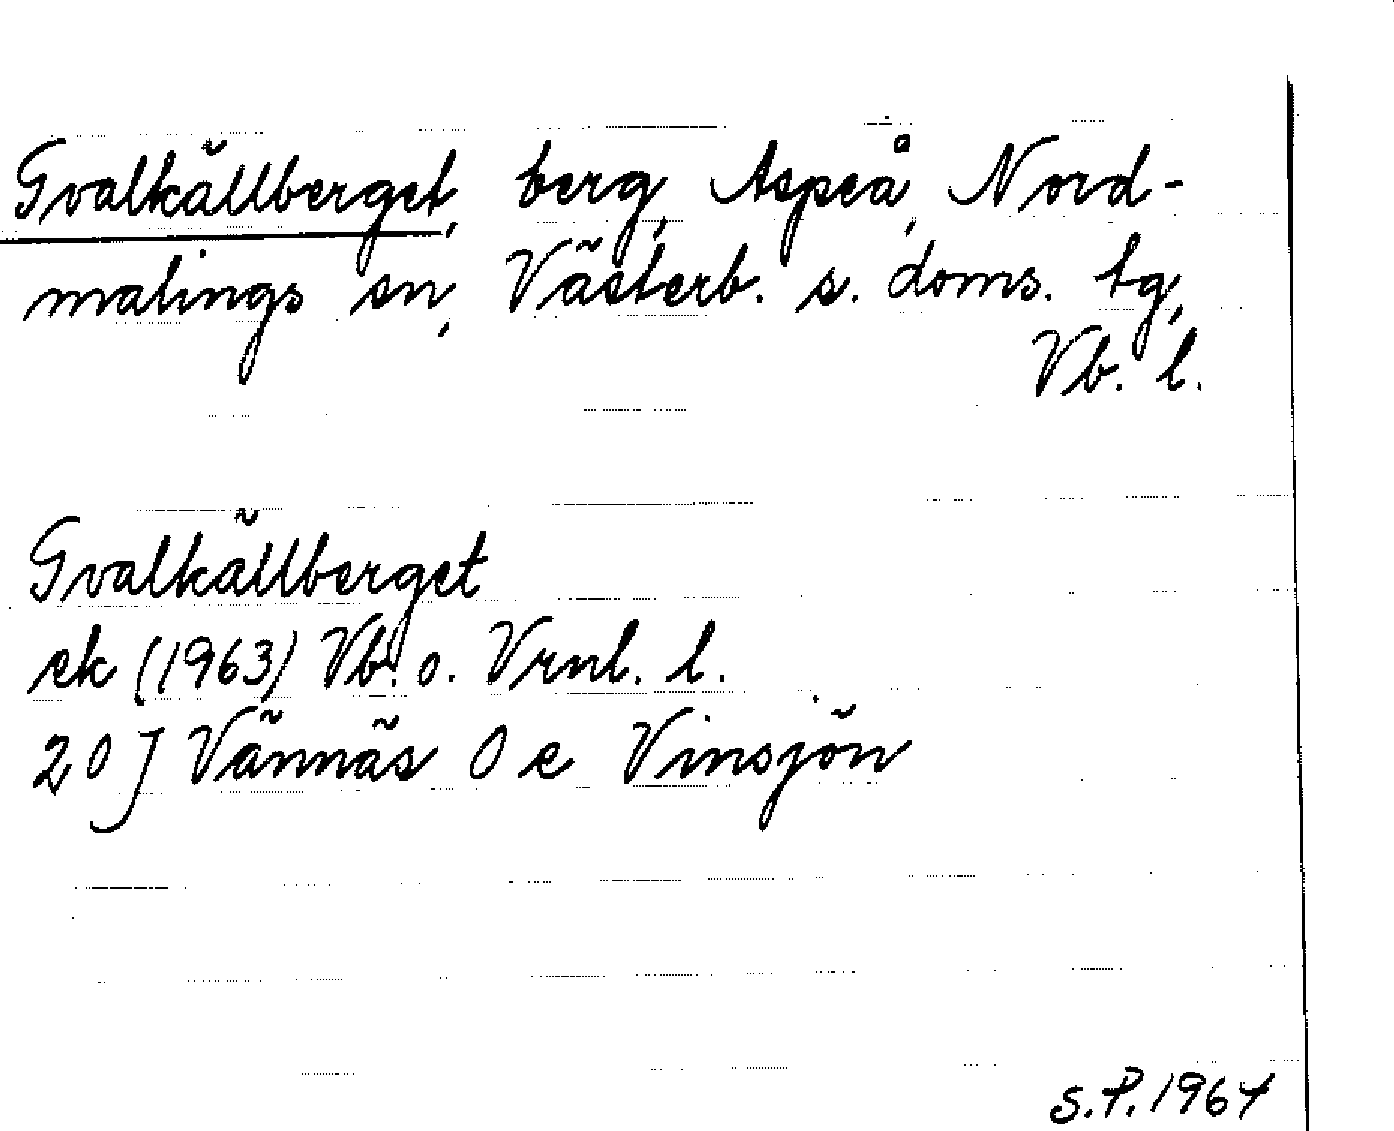 Gvalkällberget, berg, Aspeå, Nord-
malings sn, Västerb. s. doms. tg,
Vb. l.
Gvalkällberget
ek (1963) Vb. o. Vrnl. l.
20 J Vännäs 0 e Vinsjön
S.P. 1967